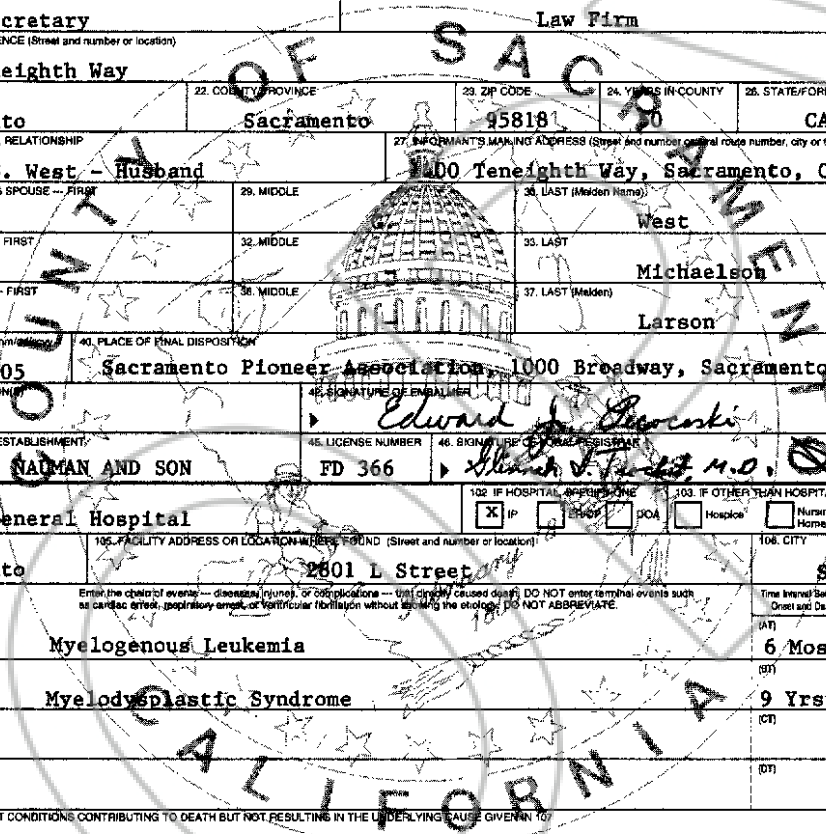 cretary Law Firm
ENCE (Street and number or location)
eighth Way
22. COUNTY/PROVINCE 23. ZIP CODE 24. YEARS IN COUNTY 25. STATE/FOR
to Sacramento 95818 CA
RELATIONSHIP 27. INFORMANT'S MAILING ADDRESS (Street and number or rural route number, city or
. West - Husband Teneighth Way, Sacramento, C
SPOUSE -- FIRST 29. MIDDLE 30. LAST (Maiden Name)
G. West
FIRST 32. MIDDLE 33. LAST
Michaelson
- FIRST 36. MIDDLE 37. LAST (Maiden)
Larson
40. PLACE OF FINAL DISPOSITION
05 Sacramento Pioneer Association, 1000 Broadway, Sacramento
42. SIGNATURE OF EMBALMER
Edward J.
ESTABLISHMENT 45. LICENSE NUMBER 46. SIGNATURE OF LOCAL REGISTRAR
NAUMAN AND SON FD 366 M.D.
102. IF HOSPITAL, SPECIFY ONE 103. IF OTHER THAN HOSPITA
eneral Hospital X IP ER/OP DOA Hospice Nursin Home
105. FACILITY ADDRESS OR LOCATION WHERE FOUND (Street and number or location) 106. CITY
to 2801 L Street S
Enter the chain of events --- diseases, injuries, or complications --- that directly caused death. DO NOT enter terminal events such Time Interval Be
as cardiac arrest, respiratory arrest, or ventricular fibrillation without showing the etiology. DO NOT ABBREVIATE. Onset and De
(AT)
Myelogenous Leukemia 6 Mos
(BT)
Myelodysplastic Syndrome 9 Yrs
(CT)
(DT)
T CONDITIONS CONTRIBUTING TO DEATH BUT NOT RESULTING IN THE UNDERLYING CAUSE GIVEN IN 107
COUNTY OF SACRAMENTO
CALIFORNIA